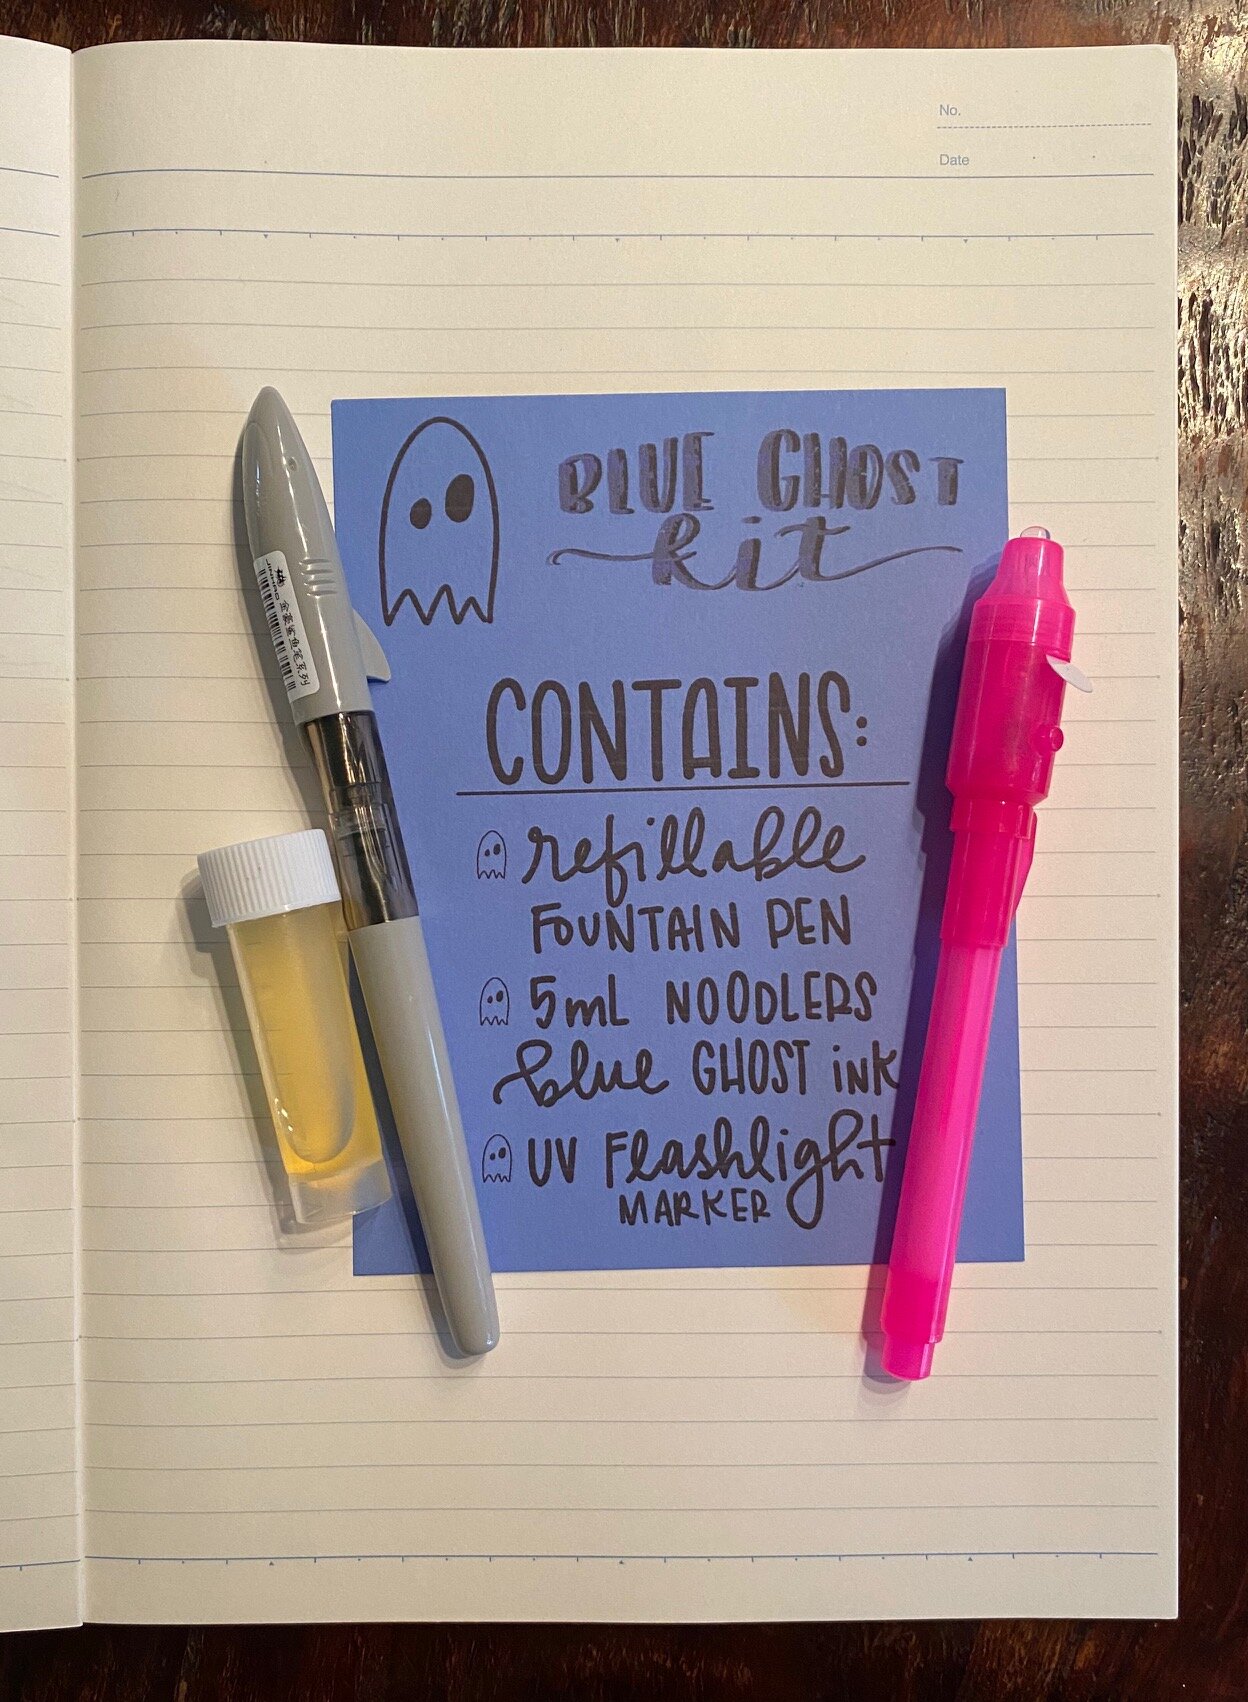 No.
Date
BLUE GHOST
kit
CONTAINS:
refillable
FOUNTAIN PEN
5mL NOODLERS
blue GHOST ink
UV Flashlight
MARKER
JINHAO
金豪鲨鱼笔系列